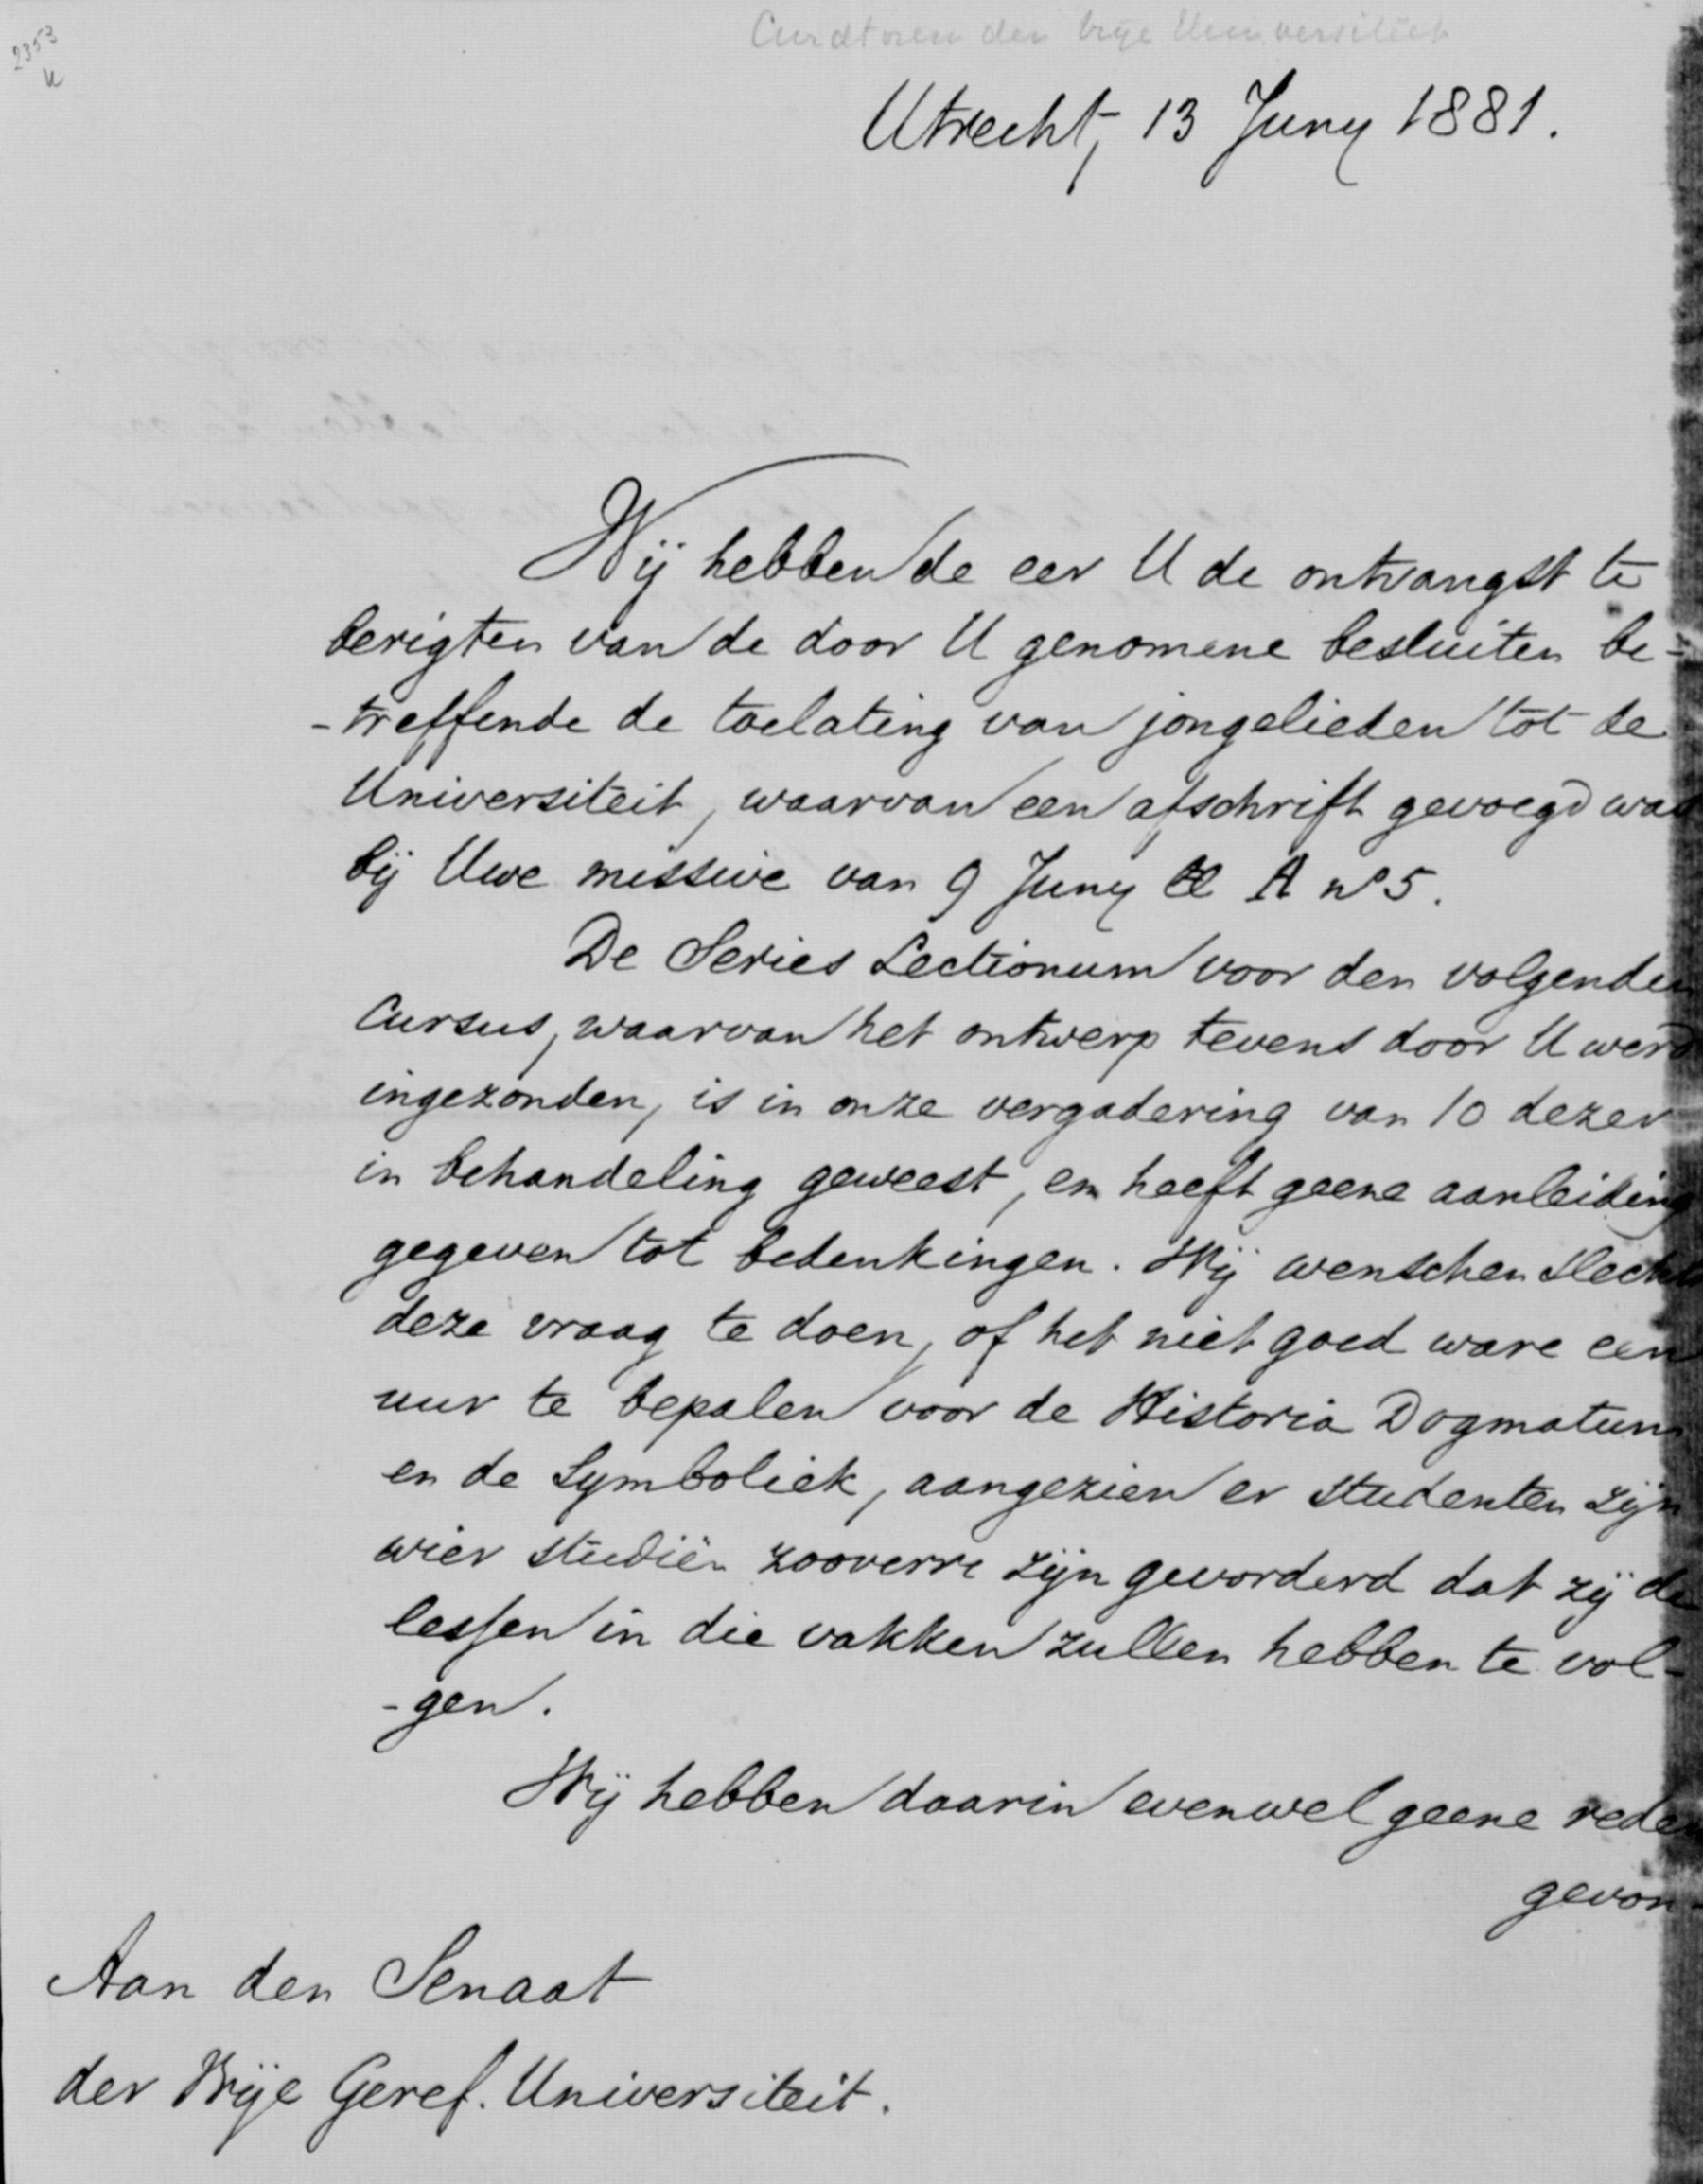 2353
Curatoren der Vrije Universiteit
Utrecht, 13 Juny 1881.
Wij hebben de eer U de ontvangst te
berigten van de door U genomene besluiten be-
-treffende de toelating van jongelieden tot de
Universiteit, waarvan een afschrift gevoegd was
bij Uwe missive van 9 Juny A no 5.
De Series Lectionum voor den volgenden
Cursus, waarvan het ontwerp tevens door U werd
ingezonden, is in onze vergadering van 10 dezer
in behandeling geweest, en heeft geene aanleiding
gegeven tot bedenkingen. Wij wenschen slechts
deze vraag te doen, of het niet goed ware een
uur te bepalen voor de Historia Dogmatum
en de Symboliek, aangezien er studenten zijn
wier studiën zooverre zijn gevorderd dat zij de
lessen in die vakken zullen hebben te vol-
-gen.
Wij hebben daarin evenwel geene reden
gevon-
Aan den Senaat
der Vrije Geref. Universiteit.